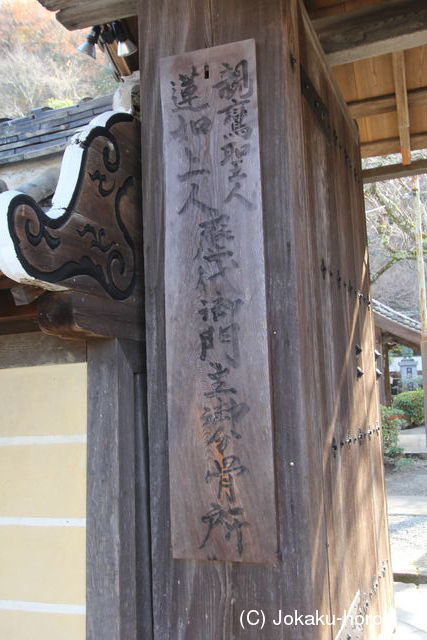 親鸞聖人
蓮如上人
歴代御門主御分骨所
(C) Jokaku-horo